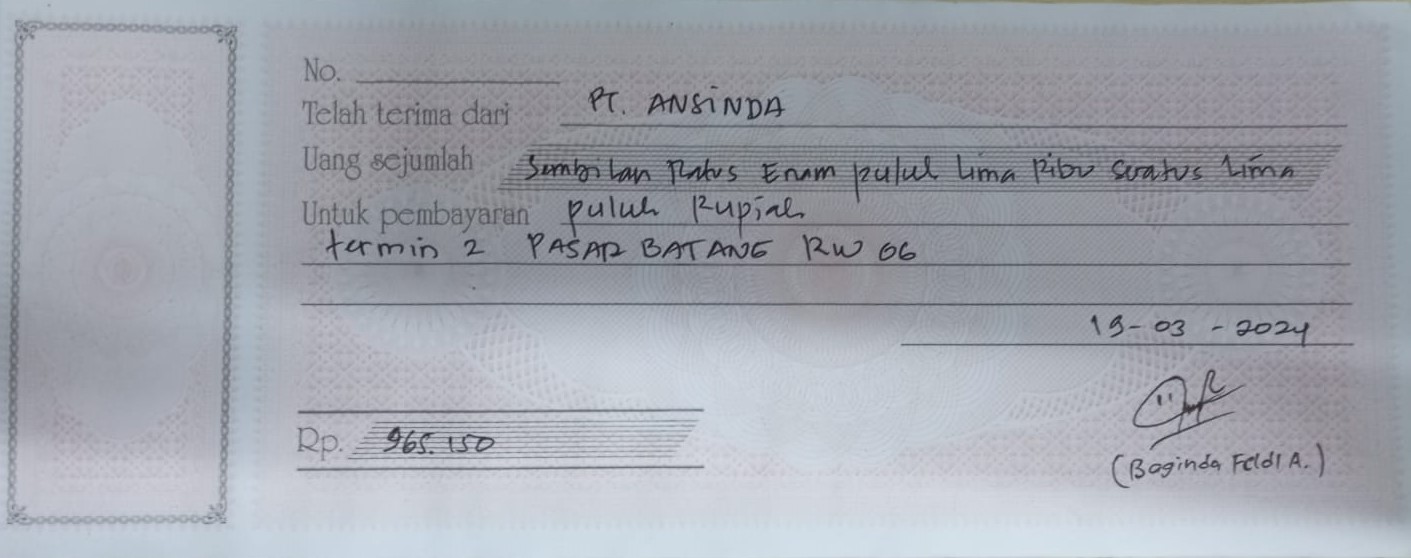 No.
Telah terima dari PT. ANSINDA
Uang sejumlah Sembilan Ratus Enam pulul Lima Ribu Seratus Lima
Untuk pembayaran puluh Rupiah
termin 2 PASAR BATANG RW 06
19-03-2024
Rp. 965.150
(Baginda Feldi A.)